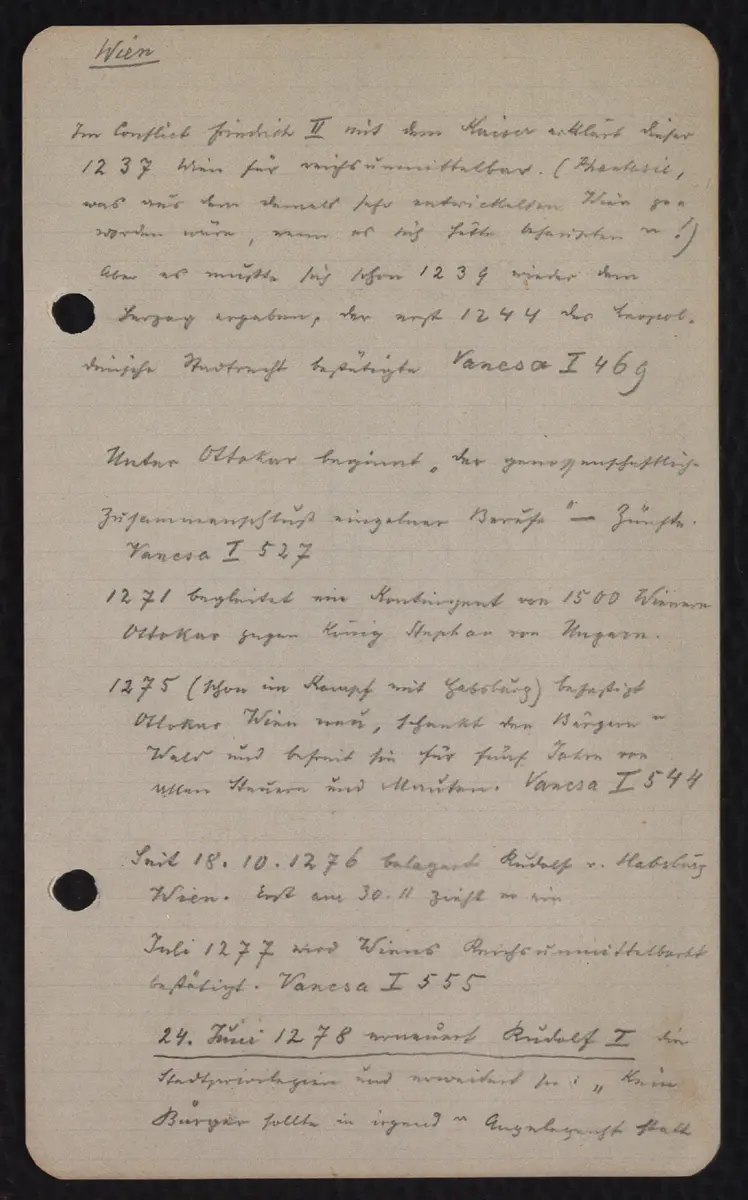 Wien
Im Conflict Friedrich II mit dem Kaiser erklärt dieser
1237 Wien für reichsunmittelbar. (Phantasie,
was aus dem damals sehr entwickelten Wien ge=
worden wäre, wenn es sich hätte !)
Aber es mußte sich schon 1239 wieder dem
Herzog ergeben, der erst 1244 das Leopol-
dinische Stadtrecht bestätigte Vancsa I 469
Unter Ottokar beginnt „der genossenschaftliche
Zusammenschluß einzelner Berufe“ — Zünfte.
Vancsa I 527
1271 begleitet ein Kontingent von 1500 Wienern
Ottokar gegen König Stephan von Ungarn.
1275 (schon im Kampf mit Habsburg) befestigt
Ottokar Wien neu, schenkt den Bürgern
Wald und befreit sie für fünf Jahre von
allen Steuern und Mauten. Vancsa I 544
Seit 18.10.1276 belagert Rudolf v. Habsburg
Wien. Erst am 30.11 zieht er ein
Juli 1277 wird Wiens Reichsunmittelbarkt
bestätigt. Vancsa I 555
24. Juni 1278 erneuert Rudolf I die
Stadtprivilegien und erweitert sie: „Kein
Bürger sollte in irgend Angelegenht statt